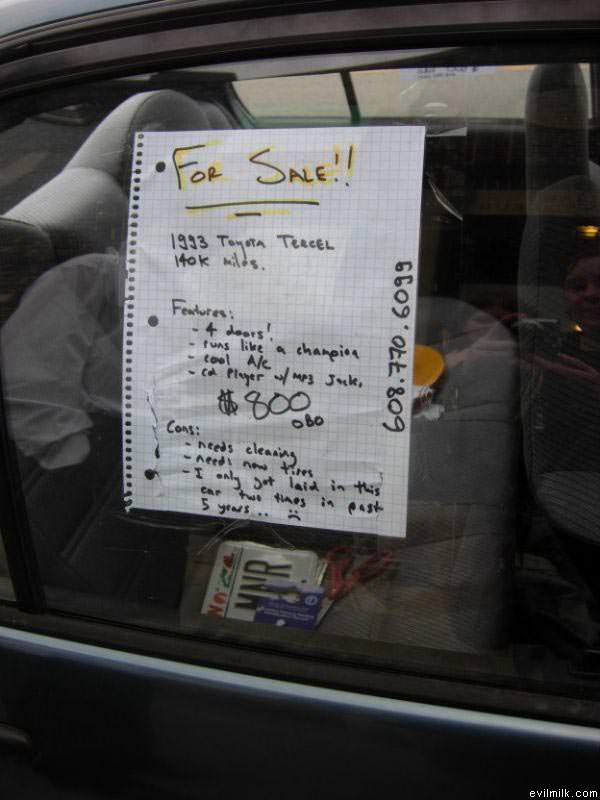 For Sale!!
1993 Toyota Tercel
140K miles.
Features:
- 4 doors!
- runs like a champion
- cool A/C
- cd player w/ mp3 Jack.
$800
OBO
Cons:
- needs cleaning
- needs new tires
- I only got laid in this
car two times in past
5 years.. :(
608.770.0699
MNR
evilmilk.com